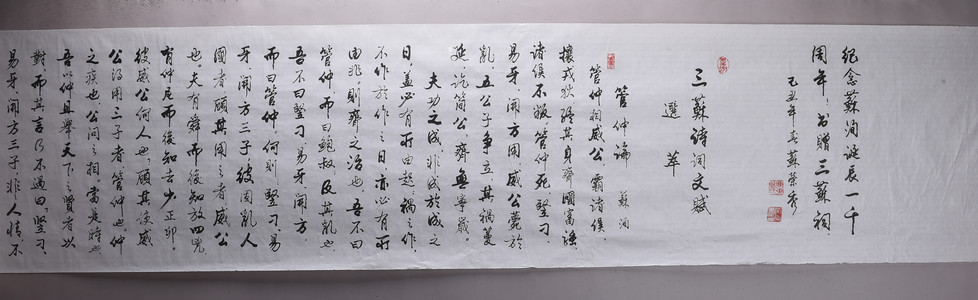 纪念蘇洵诞辰一千
周年，书赠三蘇祠。
己丑年春蘇
三蘇诗词文赋
選萃
管仲論 蘇洵
管仲相威公，霸诸侯，
攘戎狄，终其身齊國富强，
诸侯不叛。管仲死，竖刁、
易牙、開方用，威公薨於
乱，五公子争立，其祸蔓
延，讫简公，齊無寧歲。
夫功之成，非成於成之
日，盖必有所由起；禍之作，
不作於作之日，亦必有所
由兆。則齊之治也，吾不曰
管仲，而曰鲍叔；及其乱也，
吾不曰竖刁、易牙、開方，
而曰管仲。何則？竖刁、易
牙、開方三子，彼固乱人
國者，顧其用之者，威公
也。夫有舜而後知放四凶，
有仲尼而後知去少正卯。
彼威公何人也？顧其使威
公得用三子者，管仲也。仲
之疾也，公问之相。當是時也，
吾以仲且举天下之賢者以
對，而其言乃不過曰竖刁、
易牙、開方三子，非人情不